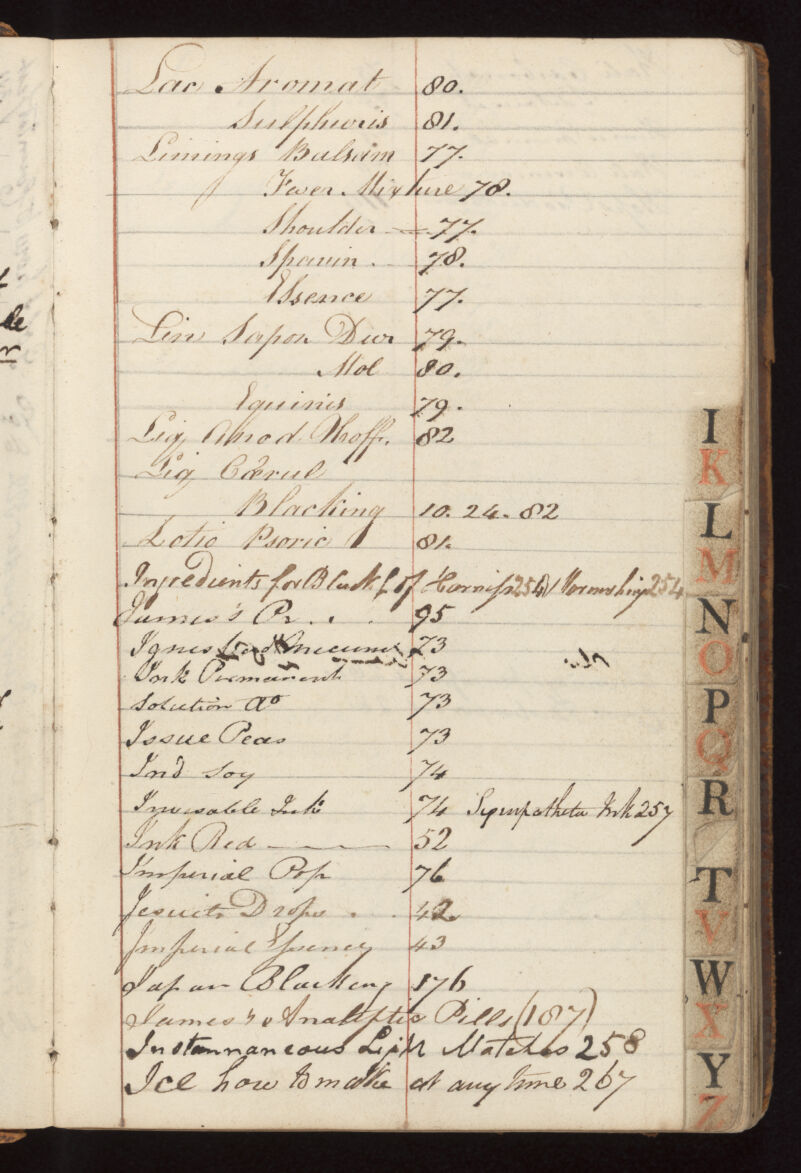 Lac Aromat 80.
Sulphuris 81.
Linings Balsam 77.
Fever Mixture 78.
Shoulder — 77.
Spavin . 78.
Essence 77.
Lin Sapon Dur 79.
Mol 80.
Equinis 79.
Liq Anod Hoff. 82
Liq Cœrul
Blacking 10. 24. 82
Lotio Psoric 81.
Ingredients for Black 254 254
James's Pr. . . 95
Ignes 73
Ink Permanent 73
Solution do 73
Issue Peas 73
Ind soy 74
Invisable Ink 74 Sympathetic Ink 257
Ink Red — 52
Imperial Pop 76
Jesuits Drops . . 42
Imperial Essency 43
Japan Blacking 176
James's Analeptic Pills (187)
Instannaneous Light Matches 258
Ice how to make at any time 267
I
K
L
M
N
O
P
Q
R
T
V
W
X
Y
Z